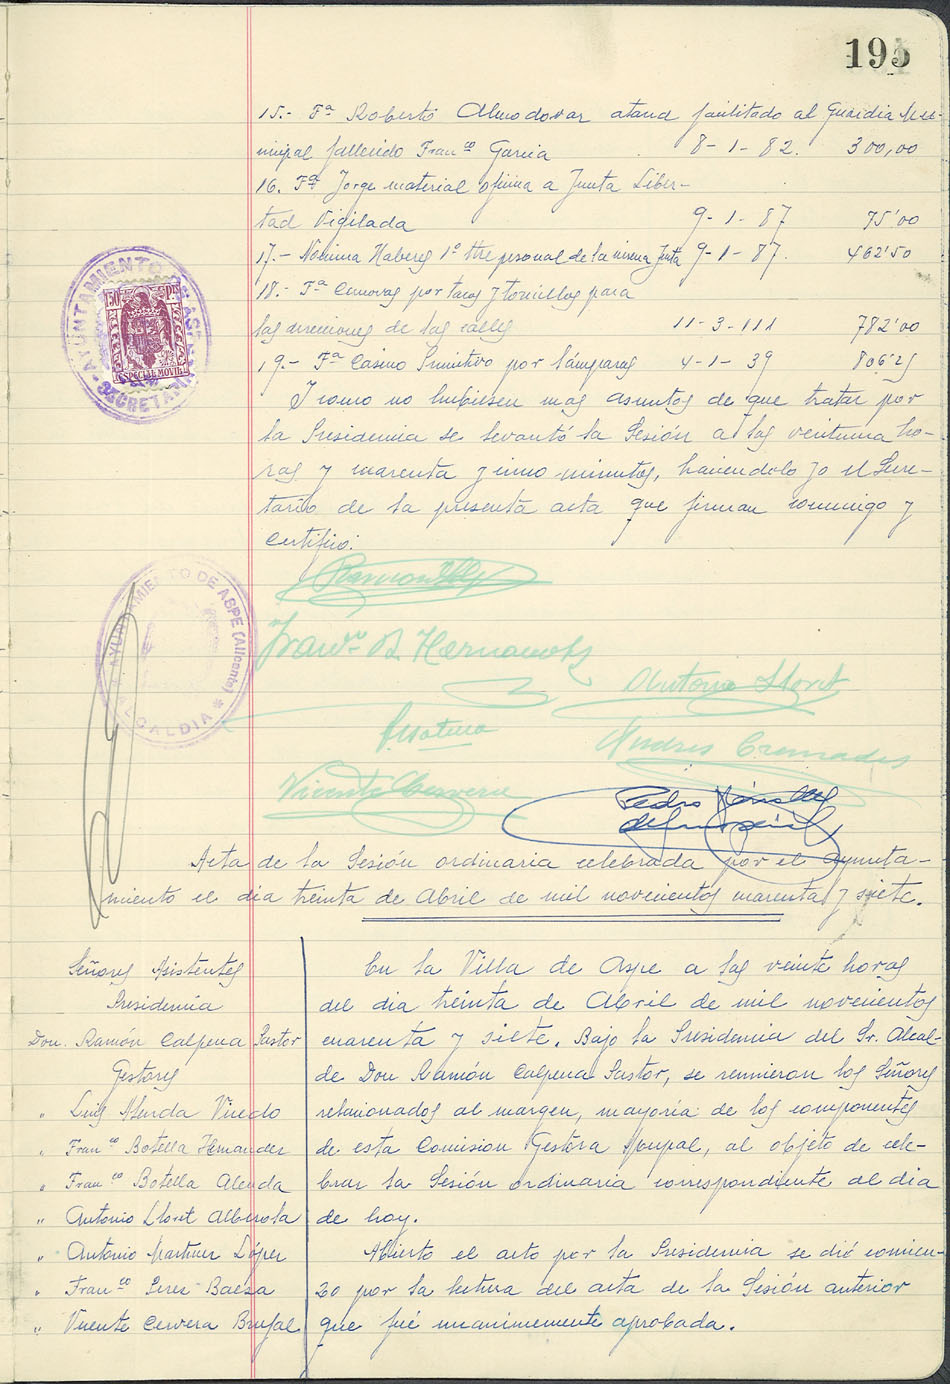 195
15.- Fª Roberto Almodovar ataud facilitado al Guardia Mu-
nicipal fallecido Franco Garcia 8-1-82. 300,00
16. Fª Jorge material oficina a Junta Liber-
tad Vigilada 9-1-87 75'00
17.- Nómina Haberes 1º ttre personal de la misma Junta 9-1-87. 462'50
18.- Fª Canovas por tacos y tornillos para
las direcciones de las calles 11-3-111 782'00
19.- Fª Casino Primitivo por lámparas 4-1-39 806'25
Y como no hubiesen mas asuntos de que tratar por
la Presidencia se levantó la Sesión a las veintiuna ho-
ras y cuarenta y cinco minutos, haciendolo yo el Secre-
tario de la presente acta que firman conmigo y
certifico.
AYUNTAMIENTO DE ASPE
SECRETARIA
50 PTS
ESPECIAL MOVIL
AYUNTAMIENTO DE ASPE (Alicante)
ALCALDIA
Franco B. Hernandez
Antonio Lloret
Andres Cremades
Vicente Cervera
Pedro
Acta de la Sesión ordinaria celebrada por el Ayunta-
miento el dia treinta de Abril de mil novecientos cuarenta y siete.
Señores Asistentes
Presidencia
Don. Ramón Calpena Pastor
Gestores
" Luis Alenda Vicedo
" Franco Botella Hernandez
" Franco Botella Alenda
" Antonio Lloret Alberola
" Antonio Martinez López
" Franco Perez Baeza
" Vicente Cervera Brufal
En la Villa de Aspe a las veinte horas
del dia treinta de Abril de mil novecientos
cuarenta y siete. Bajo la Presidencia del Sr. Alcal-
de Don Ramón Calpena Pastor, se reunieron los Señores
relacionados al margen, mayoria de los componentes
de esta Comision Gestora Mnupal, al objeto de cele-
brar la Sesión ordinaria correspondiente al dia
de hoy.
Abierto el acto por la Presidencia se dió comien-
zo por la lectura del acta de la Sesión anterior
que fué unanimemente aprobada.